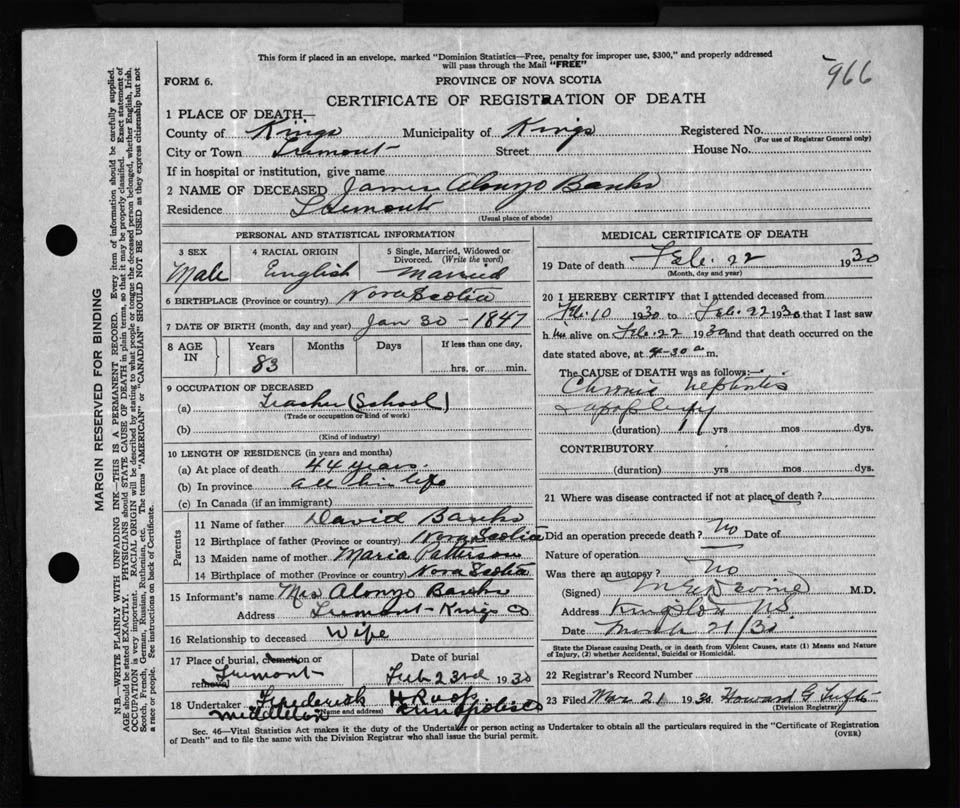 This form if placed in an envelope, marked "Dominion Statistics—Free, penalty for improper use, $300," and properly addressed
will pass through the Mail "FREE"
966
FORM 6.
PROVINCE OF NOVA SCOTIA
CERTIFICATE OF REGISTRATION OF DEATH
1 PLACE OF DEATH—
County of Kings Municipality of Kings Registered No.
(For use of Registrar General only)
City or Town Tremont Street House No.
If in hospital or institution, give name
2 NAME OF DECEASED James Alonzo Banks
Residence Tremont
(Usual place of abode)
PERSONAL AND STATISTICAL INFORMATION
3 SEX 4 RACIAL ORIGIN 5 Single, Married, Widowed or
Divorced. (Write the word)
Male English Married
6 BIRTHPLACE (Province or country) Nova Scotia
7 DATE OF BIRTH (month, day and year) Jan 30 - 1847
8 AGE IN Years Months Days If less than one day,
83 hrs. or min.
9 OCCUPATION OF DECEASED
(a) Teacher (School)
(Trade or occupation or kind of work)
(b)
(Kind of industry)
10 LENGTH OF RESIDENCE (in years and months)
(a) At place of death 44 years.
(b) In province all his life
(c) In Canada (if an immigrant)
Parents
11 Name of father David Banks
12 Birthplace of father (Province or country) Nova Scotia
13 Maiden name of mother Maria Patterson
14 Birthplace of mother (Province or country) Nova Scotia
15 Informant's name Mrs Alonzo Banks
Address Tremont - Kings Co
16 Relationship to deceased Wife
17 Place of burial, cremation or Date of burial
removal Tremont Feb 23rd 1930
18 Undertaker Frederick H Roop
(Name and address)
Middleton Annapolis
MEDICAL CERTIFICATE OF DEATH
19 Date of death Feb. 22 1930
(Month, day and year)
20 I HEREBY CERTIFY that I attended deceased from
Feb. 10 1930 to Feb. 22 1930 that I last saw
him alive on Feb. 22 1930 and that death occurred on the
date stated above, at 4-30 a m.
The CAUSE of DEATH was as follows:
Chronic Nephritis
& apoplexy
(duration) yrs mos dys.
CONTRIBUTORY
(duration) yrs mos dys.
21 Where was disease contracted if not at place of death?
Did an operation precede death? No Date of
Nature of operation
Was there an autopsy? No
(Signed) M.D.
Address Kingston NS
Date March 21/30
State the Disease causing Death, or in death from Violent Causes, state (1) Means and Nature
of Injury, (2) whether Accidental, Suicidal or Homicidal.
22 Registrar's Record Number
23 Filed Mar 21 1930 Howard G Tufts
(Division Registrar)
Sec. 46—Vital Statistics Act makes it the duty of the Undertaker or person acting as Undertaker to obtain all the particulars required in the "Certificate of Registration
of Death" and to file the same with the Division Registrar who shall issue the burial permit.
(OVER)
MARGIN RESERVED FOR BINDING
N.B.—WRITE PLAINLY WITH UNFADING INK—THIS IS A PERMANENT RECORD. Every item of information should be carefully supplied.
AGE should be stated EXACTLY. PHYSICIANS should STATE CAUSE OF DEATH in plain terms, so that it may be properly classified. Exact statement of
OCCUPATION is very important. RACIAL ORIGIN will be described by stating to what people or tongue the deceased person belonged, whether English, Irish,
Scotch, French, German, Russian, Ruthenian, etc. The terms "AMERICAN" or "CANADIAN" SHOULD NOT BE USED as they express citizenship but not
a race or people. See instructions on back of Certificate.